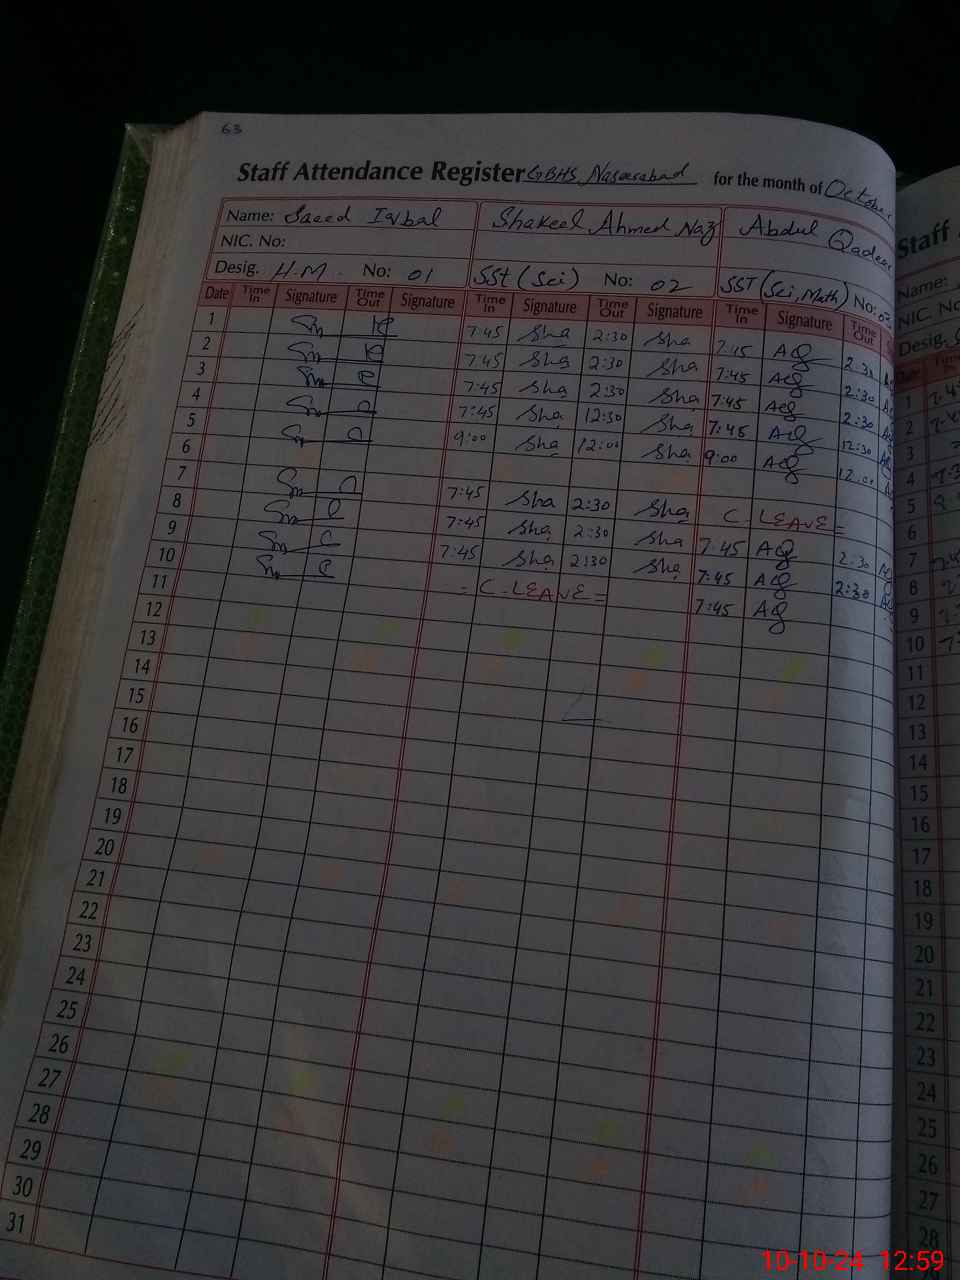 63
Staff Attendance Register GBHS Nasarabad for the month of October
Name: Saeed Iqbal Shakeel Ahmed Naz Abdul Qadeer
NIC. No:
Desig. H.M. No: 01 SSt (Sci) No: 02 SST (Sci, Math) No: 03
Date Time In Signature Time Out Signature Time In Signature Time Out Signature Time In Signature Time Out
1 7:45 Sha 2:30 Sha 7:45 AQ 2:30
2 7:45 Sha 2:30 Sha 7:45 AQ 2:30
3 7:45 Sha 2:30 Sha 7:45 AQ 2:30
4 7:45 Sha 12:30 Sha 7:45 AQ 12:30
5 9:00 Sha 12:00 Sha 9:00 AQ 12:00
6
7 7:45 Sha 2:30 Sha C. LEAVE =
8 7:45 Sha 2:30 Sha 7:45 AQ 2:30
9 7:45 Sha 2:30 Sha 7:45 AQ 2:30
10 = C. LEAVE = 7:45 AQ
11
12
13
14
15
16
17
18
19
20
21
22
23
24
25
26
27
28
29
30
31
Staff
Name:
NIC. No
Desig.
Date Time In
1
2
3
4
5
6
7
8
9
10
11
12
13
14
15
16
17
18
19
20
21
22
23
24
25
26
27
28
10-10-24 12:59